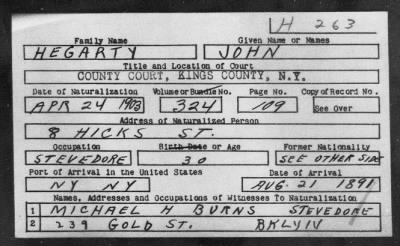 H 263
Family Name Given Name or Names
HEGARTY JOHN
Title and Location of Court
COUNTY COURT, KINGS COUNTY, N.Y.
Date of Naturalization Volume or Bundle No. Page No. Copy of Record No.
APR 24 1903 324 109 See Over
Address of Naturalized Person
8 HICKS ST.
Occupation Birth Date or Age Former Nationality
STEVEDORE 30 SEE OTHER SIDE
Port of Arrival in the United States Date of Arrival
NY NY AUG. 21 1891
Names, Addresses and Occupations of Witnesses To Naturalization
1 MICHAEL H BURNS STEVEDORE
2 239 GOLD ST. BKLYN